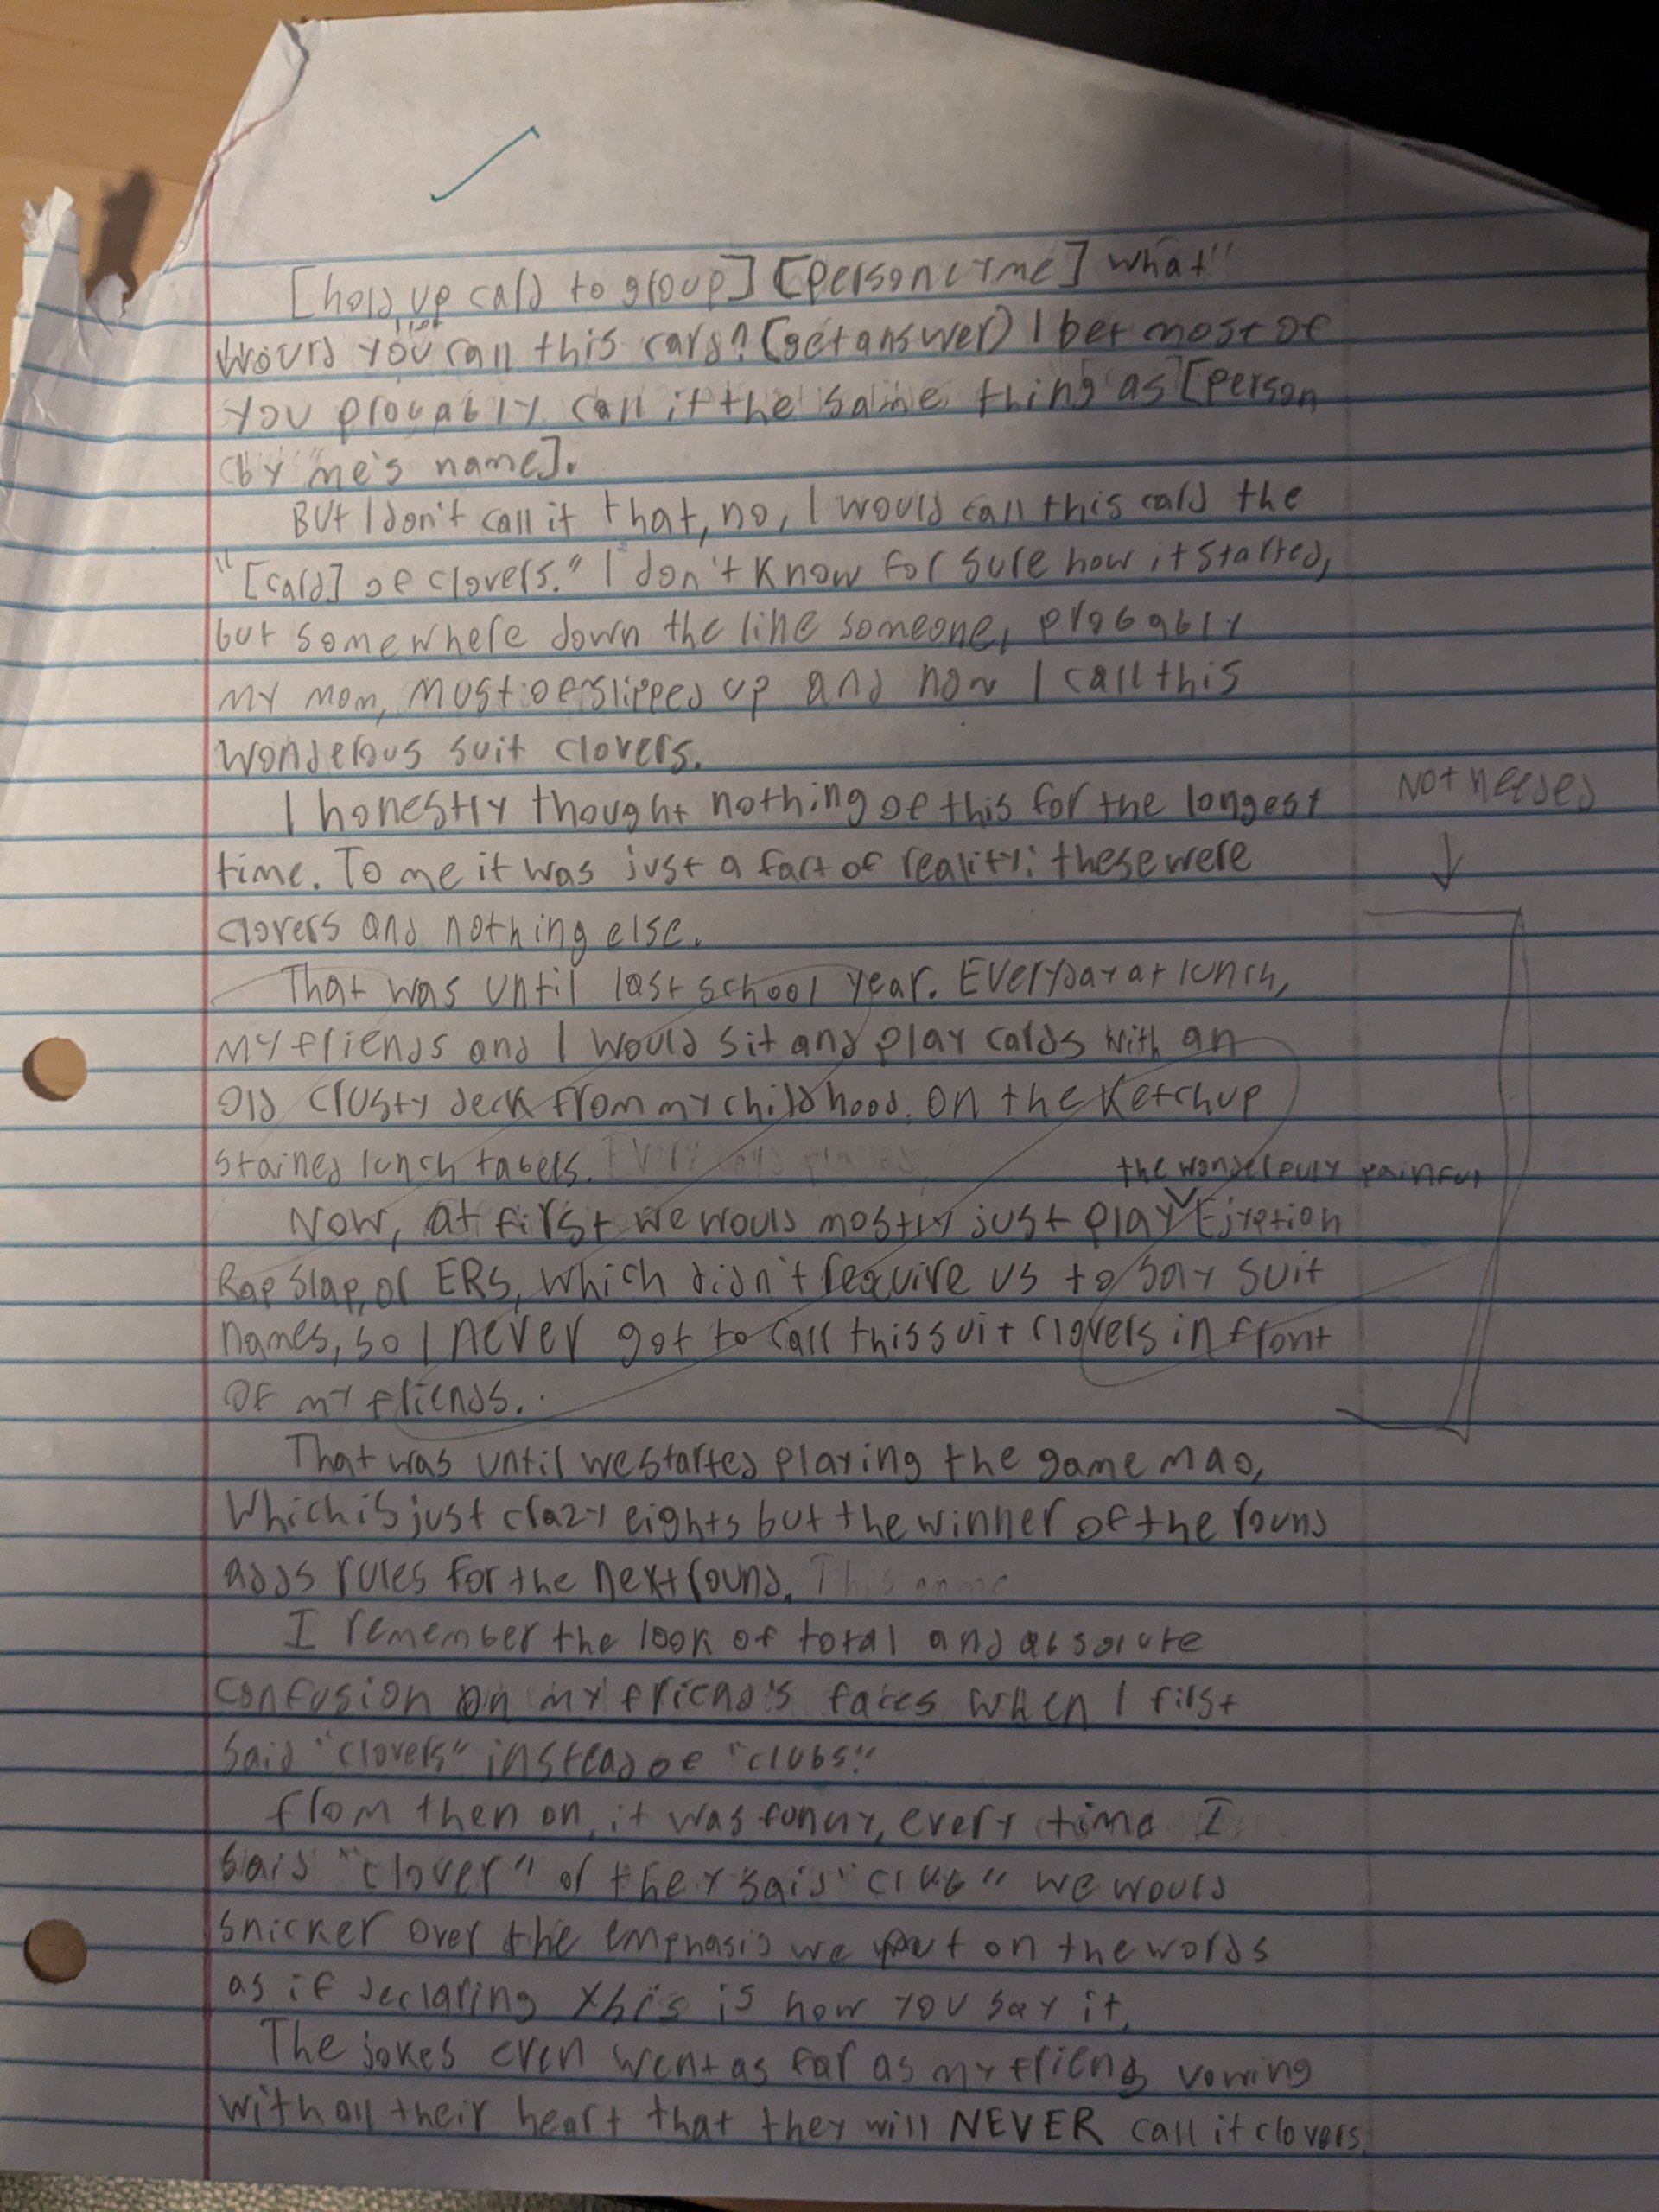 [hold up card to group] [person by me] what
would you call this card? (get answer) I bet most of
you probably call it the same thing as [person
by me's name].
But I don't call it that, no, I would call this card the
"[card] of clovers." I don't know for sure how it started,
but somewhere down the line someone, probably
my mom, must of slipped up and now I call this
wonderous suit clovers.
I honestly thought nothing of this for the longest
Not needed
time. To me it was just a fact of reality: these were
clovers and nothing else.
That was until last school year. Everyday at lunch,
my friends and I would sit and play cards with an
old crusty deck from my childhood. on the ketchup
stained lunch tabels.
the wonderfully painful
Now, at first we would mostly just play Ejyption
Rap Slap, or ERS, which didn't require us to say suit
names, so I never got to call this suit clovers in front
of my friends.
That was until we started playing the game mao,
which is just crazy eights but the winner of the round
adds rules for the next round. This game
I remember the look of total and absolute
confusion on my friend's faces when I first
said "clovers" instead of "clubs".
from then on, it was funny, every time I
said "clover" or they said "club" we would
snicker over the emphasis we put on the words
as if declaring this is how you say it.
The jokes even went as far as my friends vowing
with all their heart that they will NEVER call it clovers.